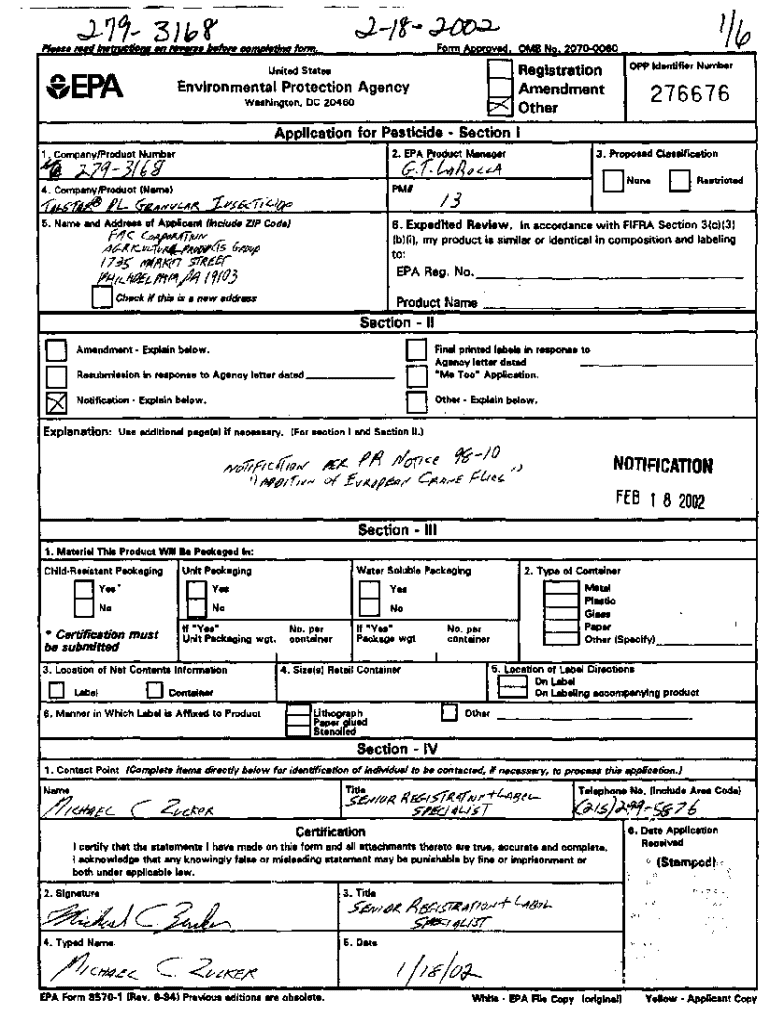 279-3168 2-18-2002 1/6
Please read instructions on reverse before completing form. Form Approved, OMB No. 2070-0060
EPA
United States
Environmental Protection Agency
Washington, DC 20460
Registration
Amendment
Other
OPP Identifier Number
276676
Application for Pesticide - Section I
1. Company/Product Number
279-3168
2. EPA Product Manager
G.T. LaRocca
3. Proposed Classification
None Restricted
4. Company/Product (Name)
Talstar® PL Granular Insecticide
PM#
13
5. Name and Address of Applicant (Include ZIP Code)
FMC Corporation
Agricultural Products Group
1735 Market Street
Philadelphia, PA 19103
Check if this is a new address
6. Expedited Review. In accordance with FIFRA Section 3(c)(3)
(b)(i), my product is similar or identical in composition and labeling
to:
EPA Reg. No.
Product Name
Section - II
Amendment - Explain below.
Resubmission in response to Agency letter dated
Notification - Explain below.
Final printed labels in response to
Agency letter dated
"Me Too" Application.
Other - Explain below.
Explanation: Use additional page(s) if necessary. (For section I and Section II.)
Notification per PR Notice 98-10
"Addition of European Crane Flies"
NOTIFICATION
FEB 18 2002
Section - III
1. Material This Product Will Be Packaged In:
Child-Resistant Packaging
Yes*
No
* Certification must
be submitted
Unit Packaging
Yes
No
If "Yes" No. per
Unit Packaging wgt. container
Water Soluble Packaging
Yes
No
If "Yes" No. per
Package wgt container
2. Type of Container
Metal
Plastic
Glass
Paper
Other (Specify)
3. Location of Net Contents Information
Label Container
4. Size(s) Retail Container
5. Location of Label Directions
On Label
On Labeling accompanying product
6. Manner in Which Label is Affixed to Product
Lithograph
Paper glued
Stenciled
Other
Section - IV
1. Contact Point (Complete items directly below for identification of individual to be contacted, if necessary, to process this application.)
Name
Michael C Zucker
Title
Senior Registration + Label
Specialist
Telephone No. (Include Area Code)
(215)299-5876
Certification
I certify that the statements I have made on this form and all attachments thereto are true, accurate and complete.
I acknowledge that any knowingly false or misleading statement may be punishable by fine or imprisonment or
both under applicable law.
6. Date Application
Received
(Stamped)
2. Signature
Michael C Zucker
3. Title
Senior Registration + Label
Specialist
4. Typed Name
Michael C Zucker
5. Date
1/18/02
EPA Form 8570-1 (Rev. 8-94) Previous editions are obsolete. White - EPA File Copy (original) Yellow - Applicant Copy